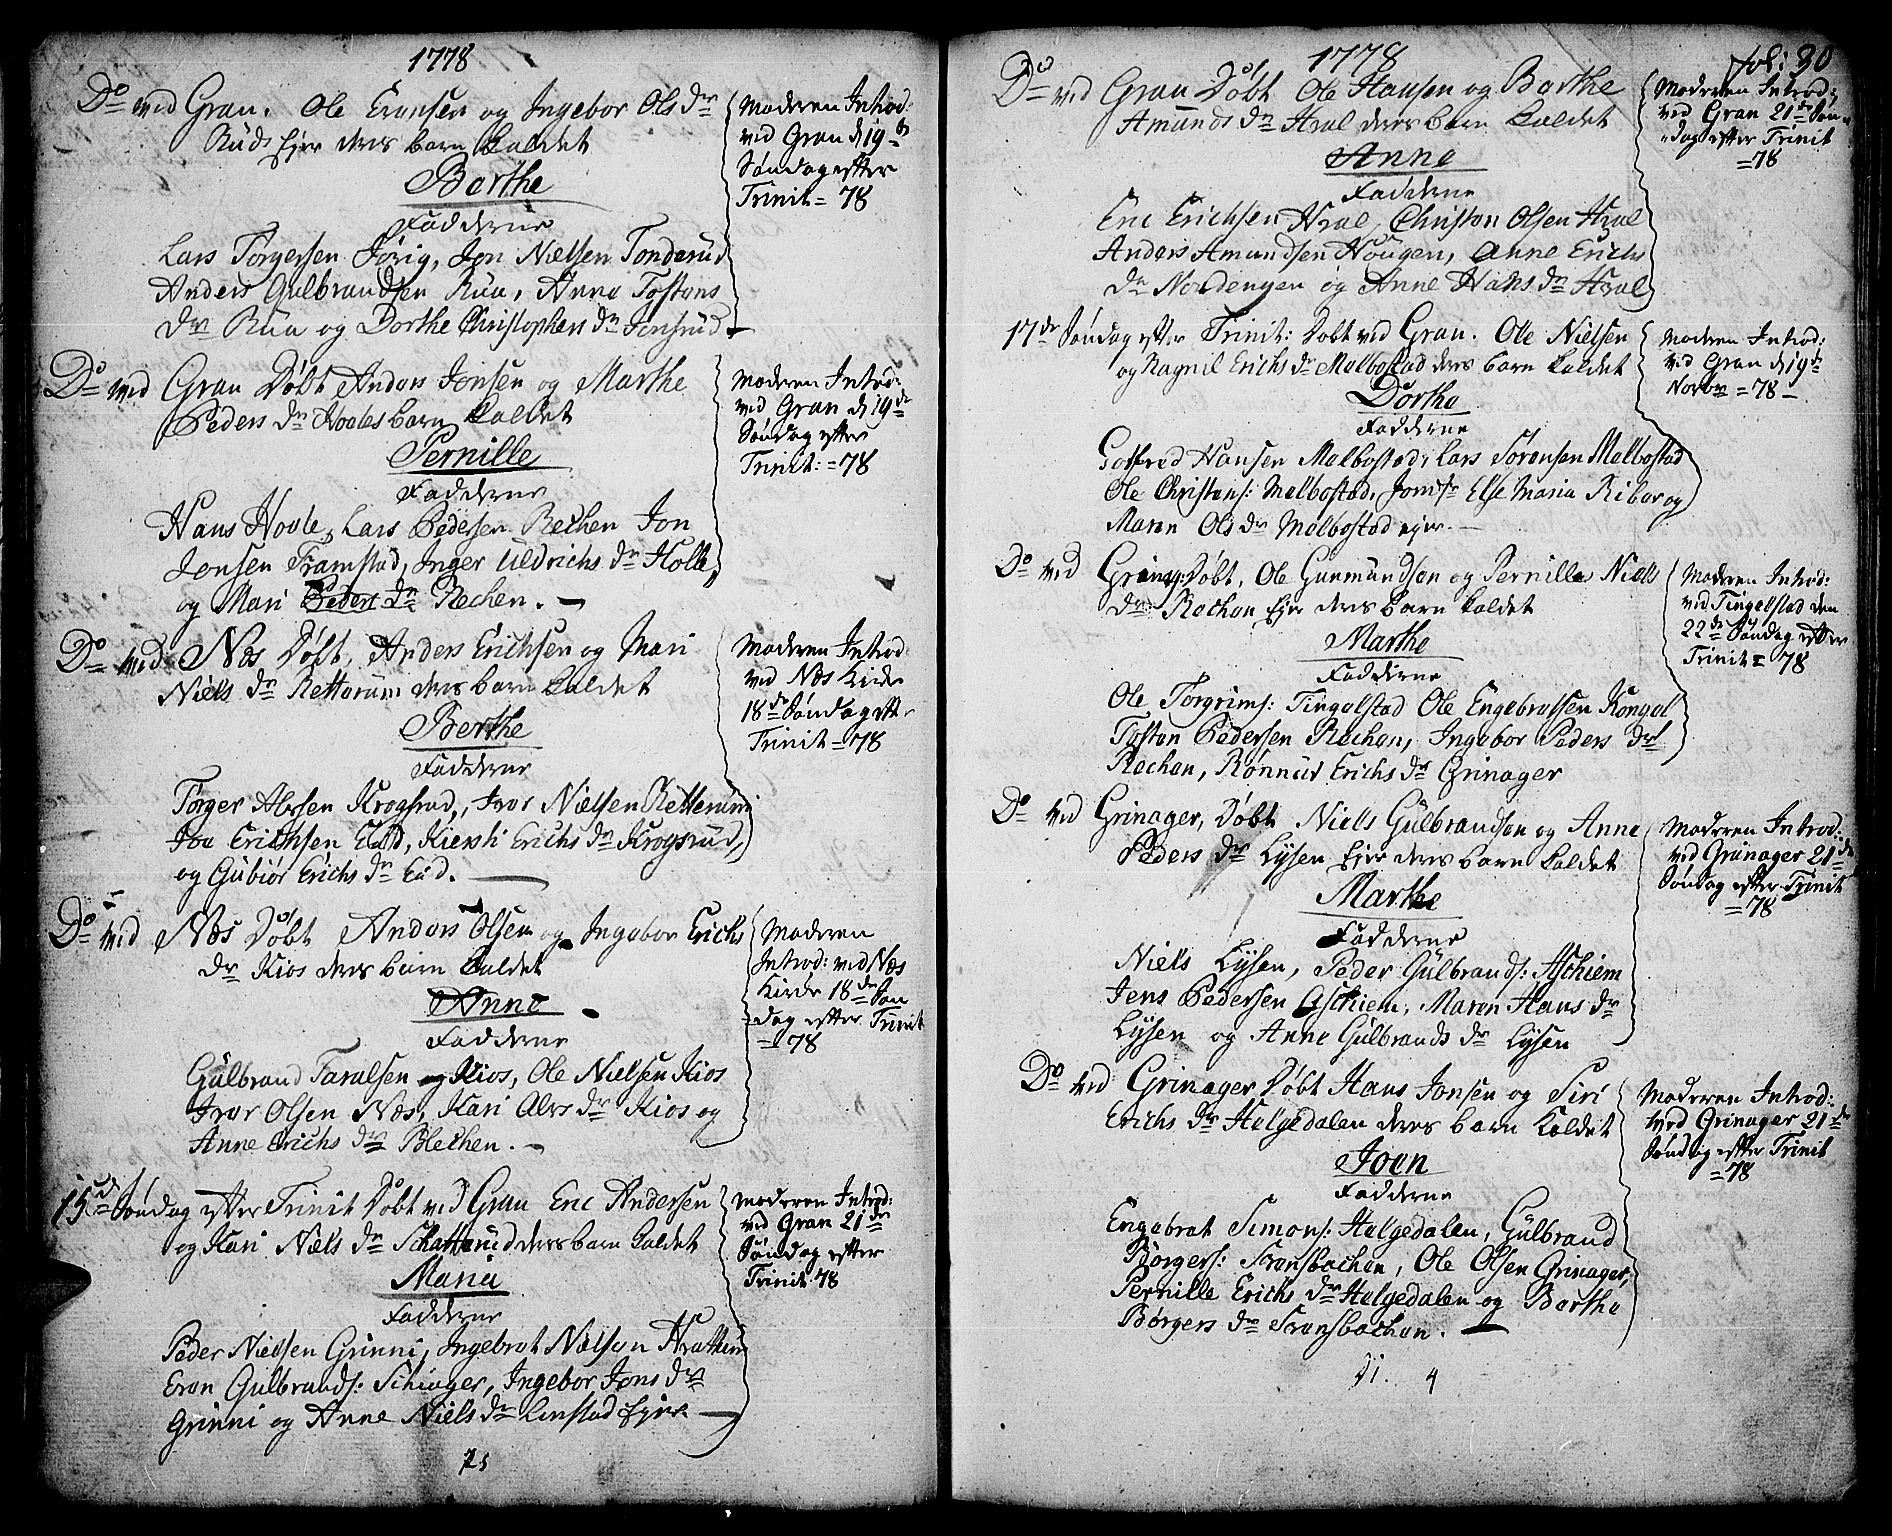 1778
Do ved Gran. Ole Eransen og Ingebor Ols dr
Ruds Ejer deres barn kaldet
Berthe
Fadderne
Lars Torgersen Jørig, Jon Nielsen Tonderud
Anders Gulbrandsen Rua, Anne Tostens
dr Rua og Dorthe Christophers dr Jensrud
Moderen Introd:
ved Gran d 19de
Søndag efter
Trinit = 78
Do ved Gran Døbt Anders Jonsen og Marthe
Peders dr Hooles barn kaldet
Pernille
Fadderne
Hans Hoole, Lars Pedersen Rechen Jon
Jonsen Framstad, Inger Uldrichs dr Holle,
og Mari Peders dr Rechen. —
Moderen Introd:
ved Gran d 19de
Søndag efter
Trinit: = 78
Do ved Næs Døbt, Anders Erichsen og Mari
Niels dr Retterum deres barn kaldet
Berthe
Fadderne
Torger Alvsen Krogsrud, Iver Nielsen Retterum
Iva Erichsen Eid, Kiersti Erichs dr Krogsrud,
og Gubiør Erichs dr Eid. —
Moderen Introd
ved Næs Kirke
18de Søndag efter
Trinit = 78
Do ved Næs Døbt Anders Olsen og Ingebor Erichs
dr Kios deres barn kaldet
Anne
Fadderne
Gulbrand Taralsen Kios, Ole Nielsen Kios
Iver Olsen Næs, Kari Alvs dr Kios og
Anne Erichs dr Blechen. —
Moderen
Introd: ved Næs
Kirke 18de Søn
dag efter Trinit
= 78
15de Søndag efter Trinit Døbt ved Gran Eric Andersen
og Kari Niels dr Schatterud deres barn kaldet
Maria
Fadderne
Peder Nielsen Grinni, Ingebret Nielsen Hvattum
Eran Gulbrands: Schiager, Ingebor Jons dr
Grinni og Anne Niels dr Linstad Ejer —
Moderen Introd:
ved Gran 21de
Søndag efter
Trinit 78
1778
fol: 30
Do ved Gran Døbt Ole Hansen og Berthe
Amunds dr Hval deres barn kaldet
Anne
Fadderne
Eric Erichsen Hval, Christen Olsen Hval
Anders Amundsen Hougen, Anne Erichs
dr Nordengen og Anne Hans dr Hval
Moderen Introd:
ved Gran 21de Søn
dag efter Trinit
= 78
17de Søndag efter Trinit: Døbt ved Gran. Ole Nielsen
og Ragnil Erichs dr Melbostad deres barn kaldet
Dorthe
Fadderne
Gotfred Hansen Melbostad, Lars Sørensen Melbostad
Ole Christens: Melbostad, Jomfr Else Maria Ribar og
Maren Ols dr Melbostad ejer. —
Moderen Introd:
ved Gran d 19de
Novbr = 78 —
Do ved Grinag: Døbt, Ole Gunmundsen og Pernille Niels
dr Rechen Ejer deres barn kaldet
Marthe
Fadderne
Ole Torgrims: Tingelstad Ole Engebretsen Kongel
Tosten Pedersen Rechen, Ingebor Peders dr
Rechen, Rønnui Erichs dr Grinager
Moderen Introd:
ved Tingelstad den
22de Søndag efter
Trinit = 78
Do ved Grinager, Døbt Niels Gulbrandsen og Anne
Peders dr Lysen Ejer deres barn kaldet
Marthe
Fadderne
Niels Lysen, Peder Gulbrands: Aschiem
Jens Pedersen Aschiem, Maren Hans dr
Lysen og Anne Gulbrands dr Lysen
Moderen Introd:
ved Grinager 21de
Søndag efter Trinit
= 78
Do ved Grinager Døbt Hans Jonsen og Siri
Erichs dr Helgedalen deres barn kaldet
Joen
Fadderne
Engebret Simons: Helgedalen, Gulbrand
Børgers: Fransbachen, Ole Olsen Grinager,
Pernille Erichs dr Helgedalen og Berthe
Børgers dr Fransbachen. —
Moderen Introd:
ved Grinager 21de
Søndag efter Trinit
= 78